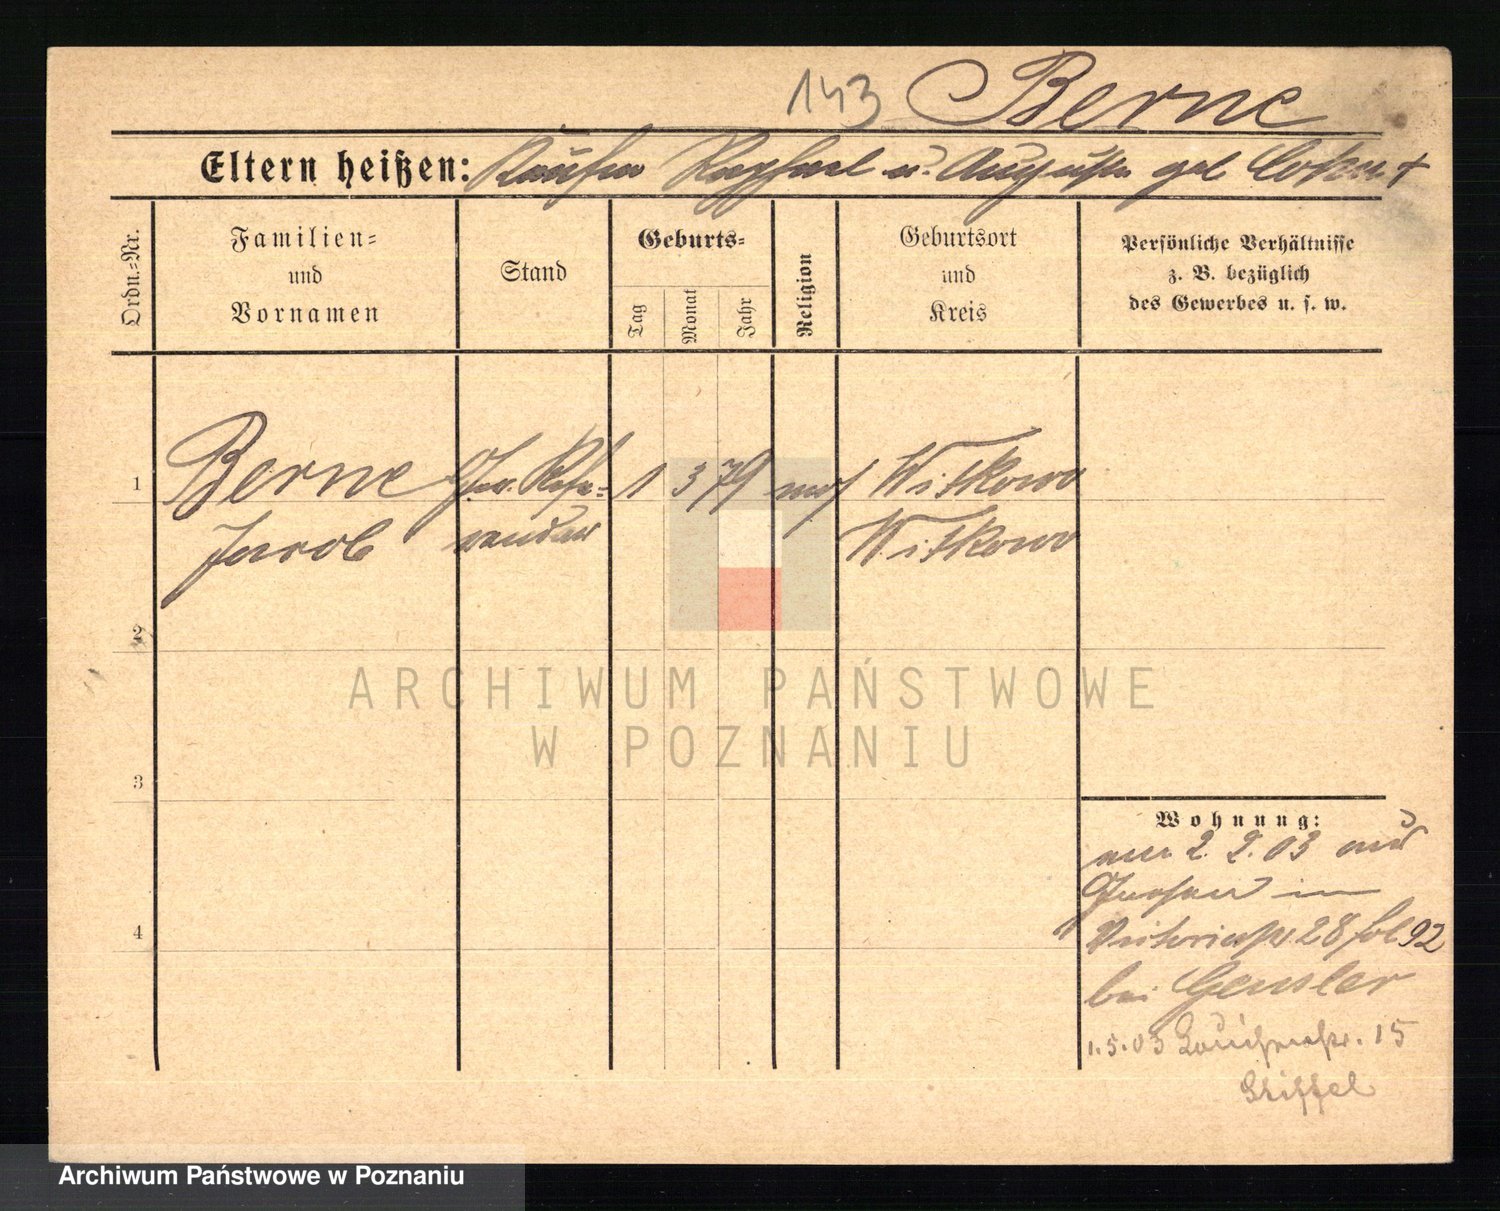 143 Berne
Eltern heißen: Kaufm Raphael u. Auguste geb Cohn †
Ordn.=Nr.
Familien=
und
Vornamen
Stand
Geburts=
Tag
Monat
Jahr
Religion
Geburtsort
und
Kreis
Persönliche Verhältnisse
z. B. bezüglich
des Gewerbes u. s. w.
1 Berne Ger. Refe= 1 3 79 mos Witkowo
Jacob rendar Witkowo
2
3
4
Wohnung:
2. 2. 03 aus
Gnesen in
Viktoriastr 28 fol 92
bei Gensler
1.5.03 Louisenstr. 15
Stiffel
ARCHIWUM PAŃSTWOWE
W POZNANIU
Archiwum Państwowe w Poznaniu